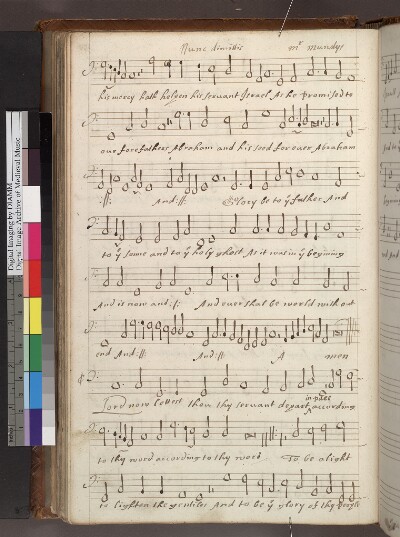 Nunc dimittis mr mundys
his mercy hath holpen his servant Israel As he promised to
our forefathers Abraham and his seed for ever Abraham
:||: And :||: Glory be to ye father And
to ye sonne and to ye holy ghost As it was in ye begining
And is now and :||: And ever shal be world without
end And :||: And :||: A men
Lord now lettest thou thy servant depart in peace according
to thy word according to thy word To be a light
to lighten the gentiles And to be ye glory of thy people
Digital Imaging by DIAMM
Digital Image Archive of Medieval Music